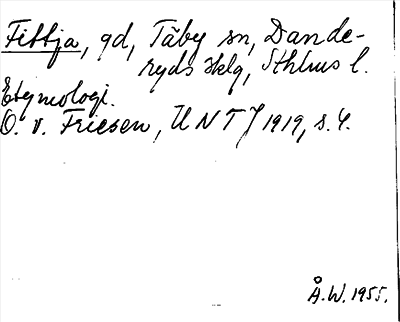 Fittja, gd, Täby sn, Dande-
ryds sklg, Sthlms l.
Etymologi.
O. v. Friesen, UNT 1919, s. 4.
Å.W. 1955.